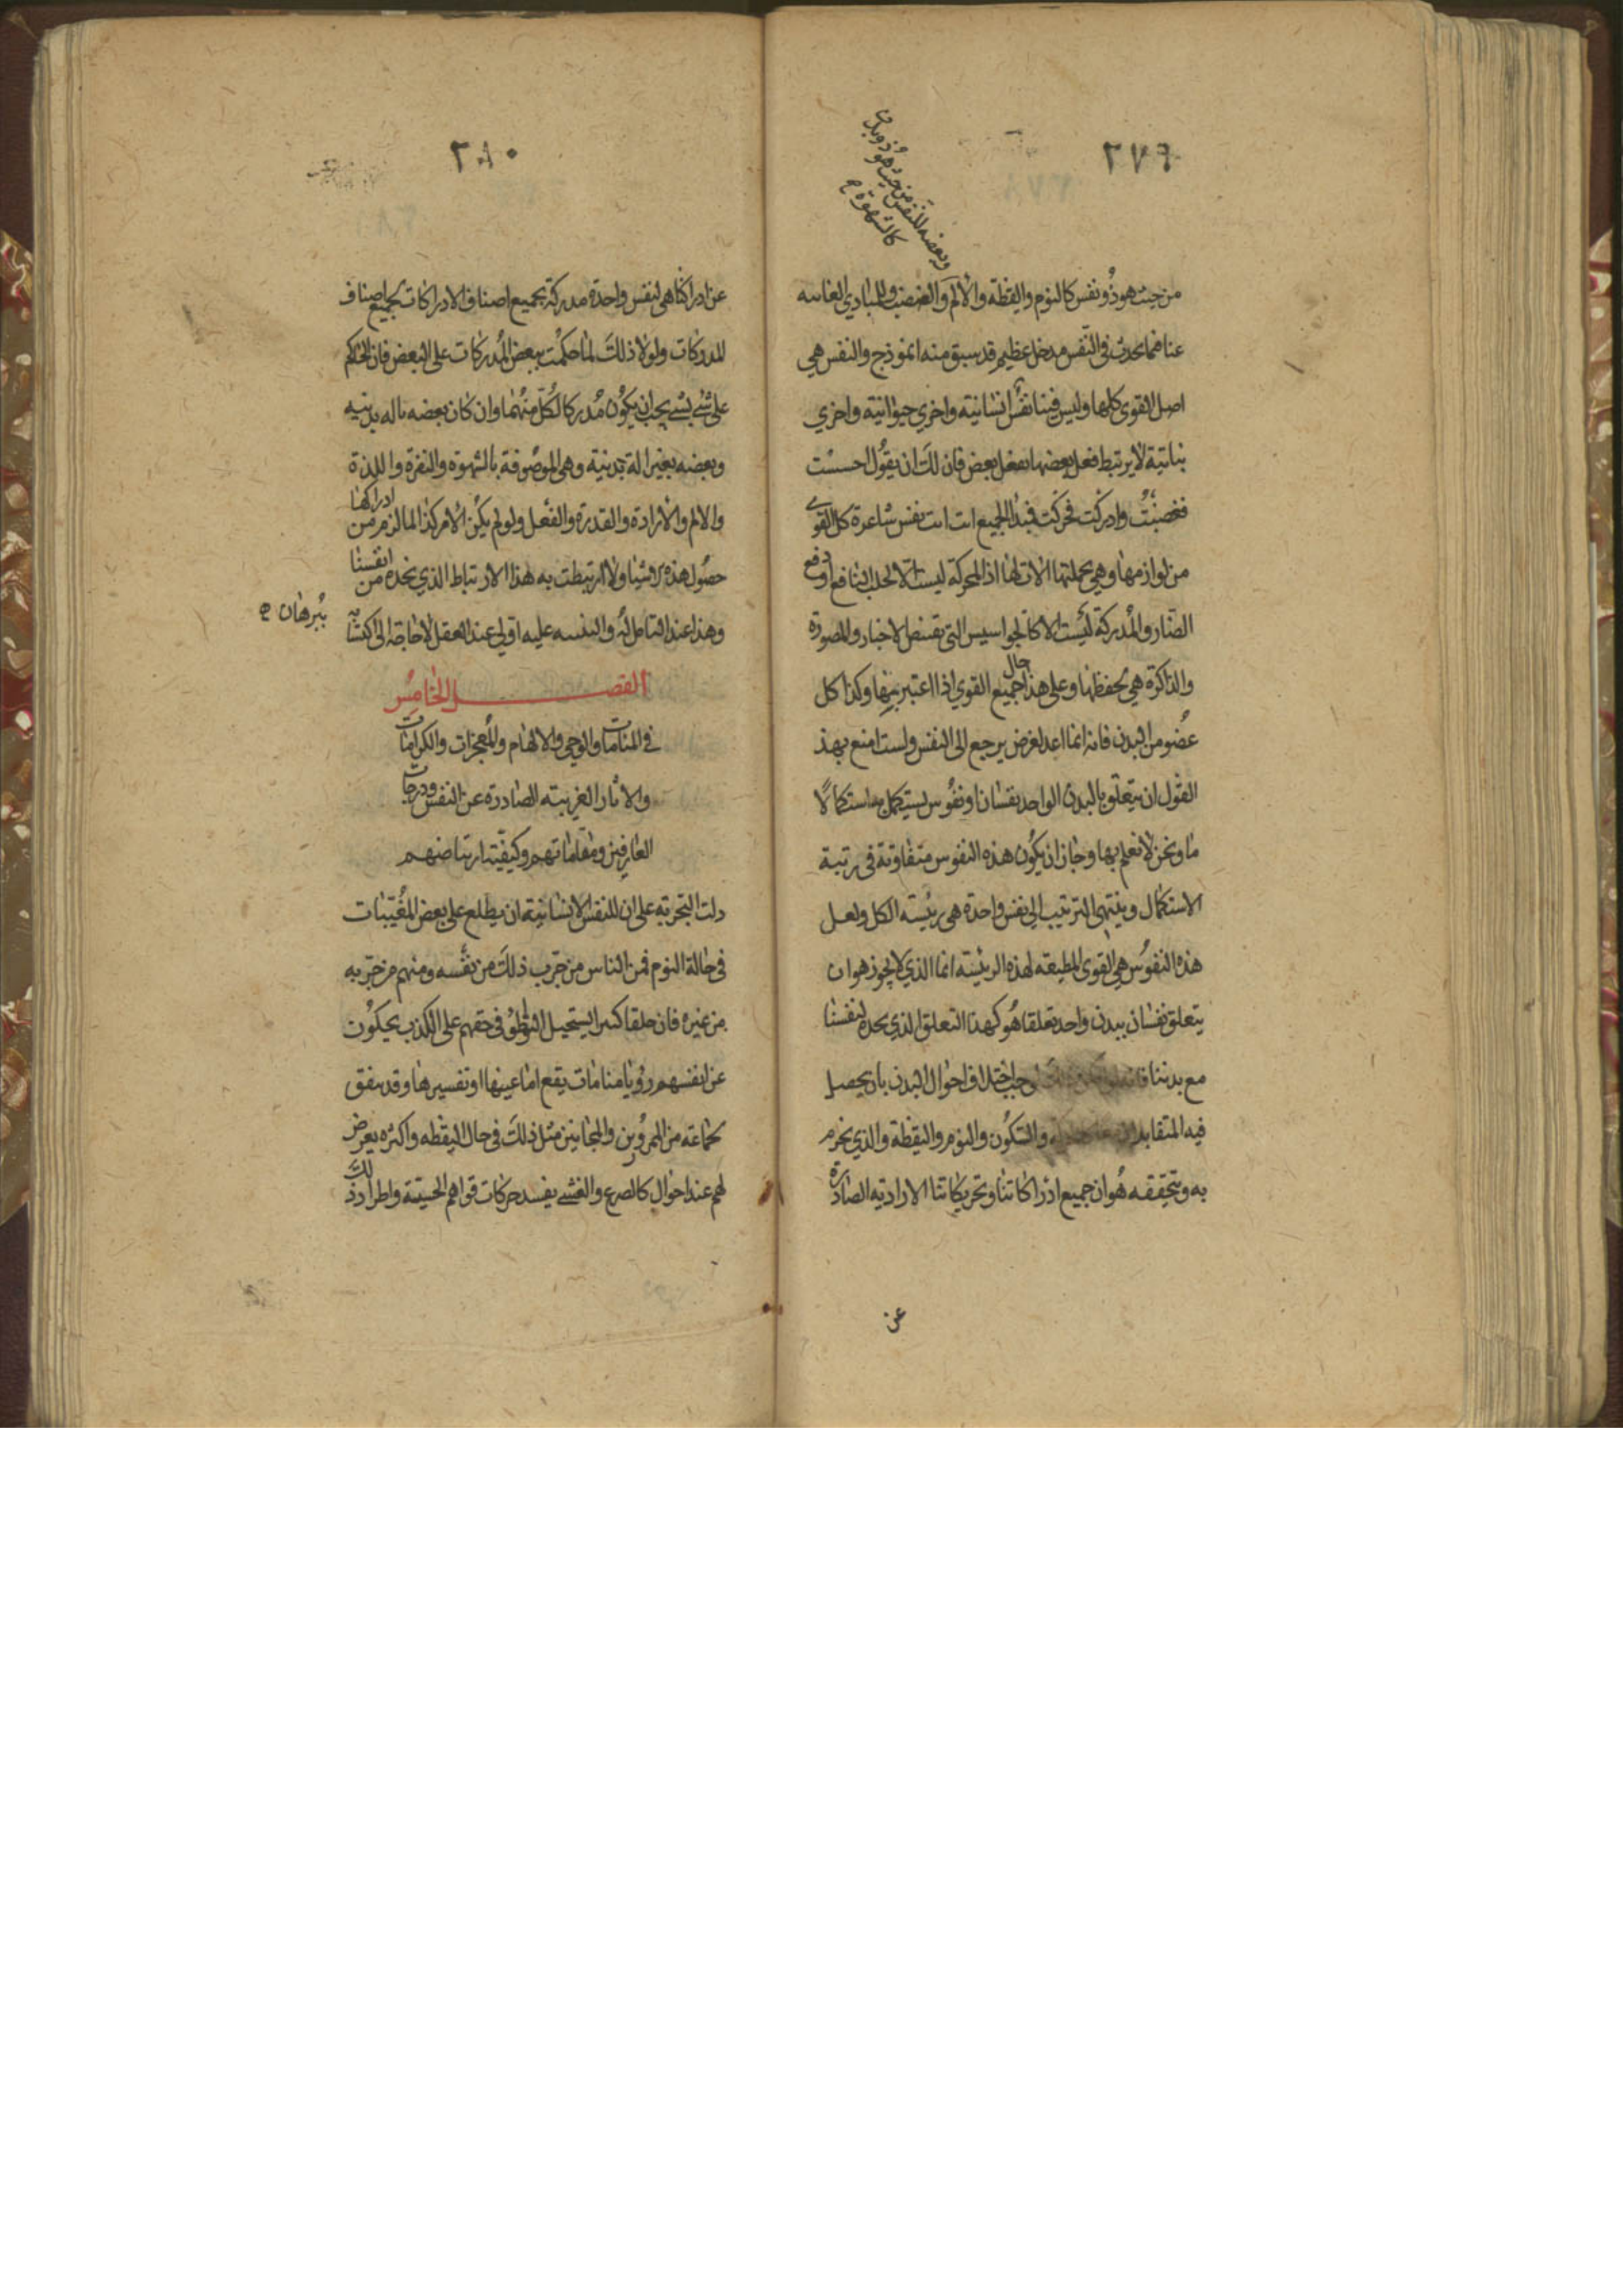 ٢٧٩
وبعضه للنفس من حيث هو ذو بدن
كالشهوة
من حيث هو ذُو نفس كالنوم واليقظة والألم والغضب وللمبادي الغاسه
عنا فيما يحدث في النّفس مدخل عظيم قد سبق منه انموذج والنفس هي
اصل القوى كلها وليس فينا نفس انسانية واخري حيوانية واخري
نباتية لا يرتبط فعل بعضها بفعل بعض فان لك ان يقول احسست
فغضبتُ وادركت فحركت فمبدا الجميع انت انت نفس شاعرة كل القوى
من لوازمها وهي بجملتها الات لها اذ المحركة ليست الا لجلب النافع او دفع
الضّار والمُدركة ليست الا كالجواسيس التي تقتنص الاخبار والمصورة
والذاكرة هي لحفظها وعلى هذا حال جميع القوي اذا اعتبر بينها وكذا كل
عُضو من البدن فانه انما اعد لغرض يرجع الى النفس ولست امنع بهذ
القول ان يتعلق بالبدن الواحد نفسان او نفُوس ليستكمل به استكمالًا
ما ونحن لا نعلم بها وجاز ان يكون هذه النفوس متفاوتة في رتبة
الاستكمال وينتهي الترتيب الي نفس واحدة هي رئيسة الكل ولعل
هذه النفُوس هي القوى المطيعة لهذه الرئيسة انما الذي لا يجوز هو ان
يتعلق نفسان ببدن واحد تعلقا هُو كهذا التعلق الذي نجده لنفسنا
مع بدننا وجب اختلاف احوال البدن بان يحصل
فيه المتقابلان والسكُون والنوم واليقظة والذي نجزم
به ونتحققه هُو ان جميع ادراكاتنا وتحريكاتنا الارادية الصادرة
عن
٢٨٠
عن ادراكنا هي لنفس واحدة مدركة بجميع اصناف الادراكات لجميع اصناف
المدركات ولولا ذلك لما حكمْت ببعض المُدركات على البعض فان الحاكم
على شئ بشئ يجب ان يكُون مُدركا لكُلّ منهُما وان كان بعضه باله بدنيه
وبعضه بغير الة بدنية وهي الموصُوفة بالشهوة والنفرة واللذة
والالم والارادة والقدرة والفعل ولو لم يكن الامر كذا لما لزم من ادراكها
حصُول هذه الاشيا ولا ارتبطت به هذا الارتباط الذي نجده من انفسنا
وهذا عند التامل لهُ والتنبيه عليه اولي عند العقل لا حاجة الى اكتسابه
ببُرهان
الفصل الخامس
في المنامات والوحي والالهام والمُعجزات والكرامات
والاثار الغريبة الصادرة عن النفس ودرجات
العارفين ومقاماتهم وكيفية ارتياضهم
دلت التجربة على ان للنفس الانسانية ان يطلع على بعض المُغيّبات
في حالة النوم فمن الناس من جرّب ذلك من نفسه ومنهم من جرّبه
من غيره فان خلقا كثيرا يستحيل التواطؤ في حقهم على الكذب يحكُون
عن انفسهم رؤيا منامات يقع اما عينها او تفسيرها وقد يتفق
لجماعة من الممرُورين والمجانين مثل ذلك في حال اليقظه واكثره يعرض
لهم عند احوال كالصرع والغشي يفسد حركات قواهم الحسيّة واطراد ذلك